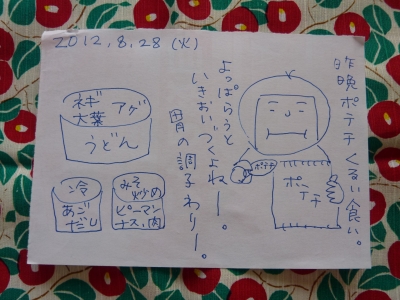 2012.8.28 (火)
昨晩ポテチくるい食い。
よっぱらうと
いきおいづくよねー。
胃の調子わりー。
ポテチ
ポテチ
ネギ
大葉
アゲ
うどん
冷
あご
だし
みそ
炒め
ピーマン
ナス、肉